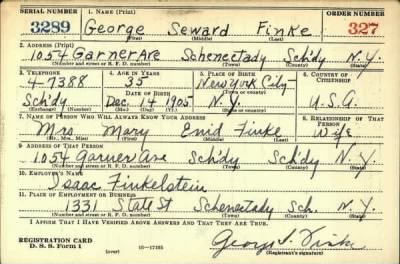 SERIAL NUMBER 1. NAME (Print) ORDER NUMBER
3289 George Seward Finke 327
(First) (Middle) (Last)
2. ADDRESS (Print)
1054 Garner Ave Schenectady Sch'dy N.Y.
(Number and street or R. F. D. number) (Town) (County) (State)
3. TELEPHONE 4. AGE IN YEARS 5. PLACE OF BIRTH 6. COUNTRY OF CITIZENSHIP
4-7388 35 New York City
DATE OF BIRTH (Town or county)
Sch'dy Dec. 14 1905 N.Y. U.S.A.
(Exchange) (Number) (Mo.) (Day) (Yr.) (State or country)
7. NAME OF PERSON WHO WILL ALWAYS KNOW YOUR ADDRESS 8. RELATIONSHIP OF THAT PERSON
Mrs Mary Enid Finke Wife
(Mr., Mrs., Miss) (First) (Middle) (Last)
9. ADDRESS OF THAT PERSON
1054 Garner Ave Sch'dy Sch'dy N.Y.
(Number and street or R. F. D. number) (Town) (County) (State)
10. EMPLOYER'S NAME
Isaac Finkelstein
11. PLACE OF EMPLOYMENT OR BUSINESS
1331 State St Schenectady Sch. N.Y.
(Number and street or R. F. D. number) (Town) (County) (State)
I AFFIRM THAT I HAVE VERIFIED ABOVE ANSWERS AND THAT THEY ARE TRUE.
REGISTRATION CARD
D. S. S. Form 1 (over) 16—17105 George S. Finke
(Registrant's signature)